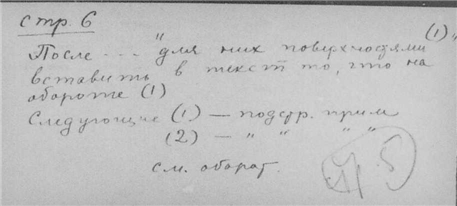 стр. 6
После ... "для них поверхностями (1)"
вставить в текст то, что на
обороте (1)
Следующие (1) – подстр. прим
(2) – " " " "
см. оборот.
стр. 5